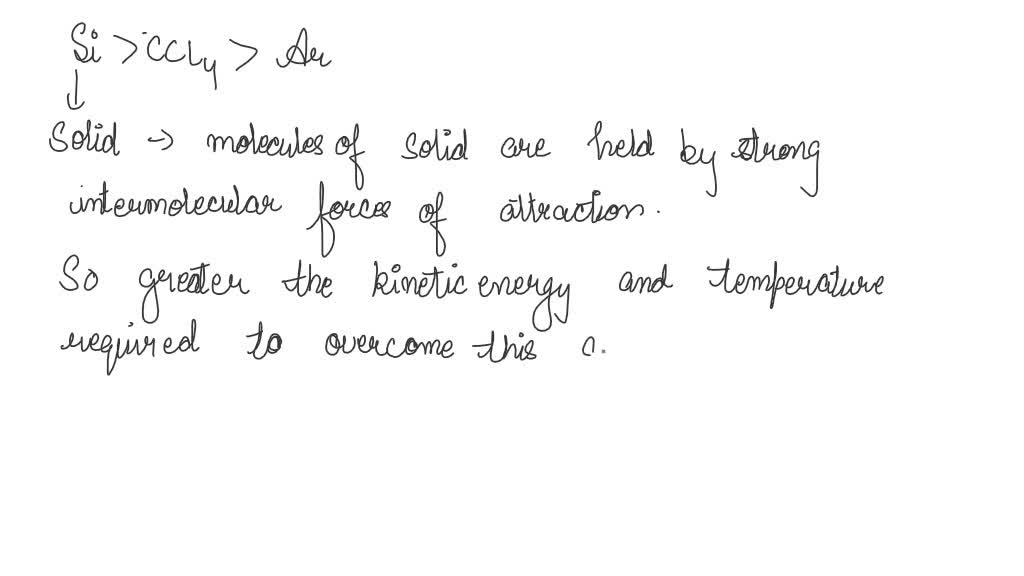 Si > CCl4 > Ar
↓
Solid → molecules of solid are held by strong
intermolecular forces of attraction.
So greater the kinetic energy and temperature
required to overcome this